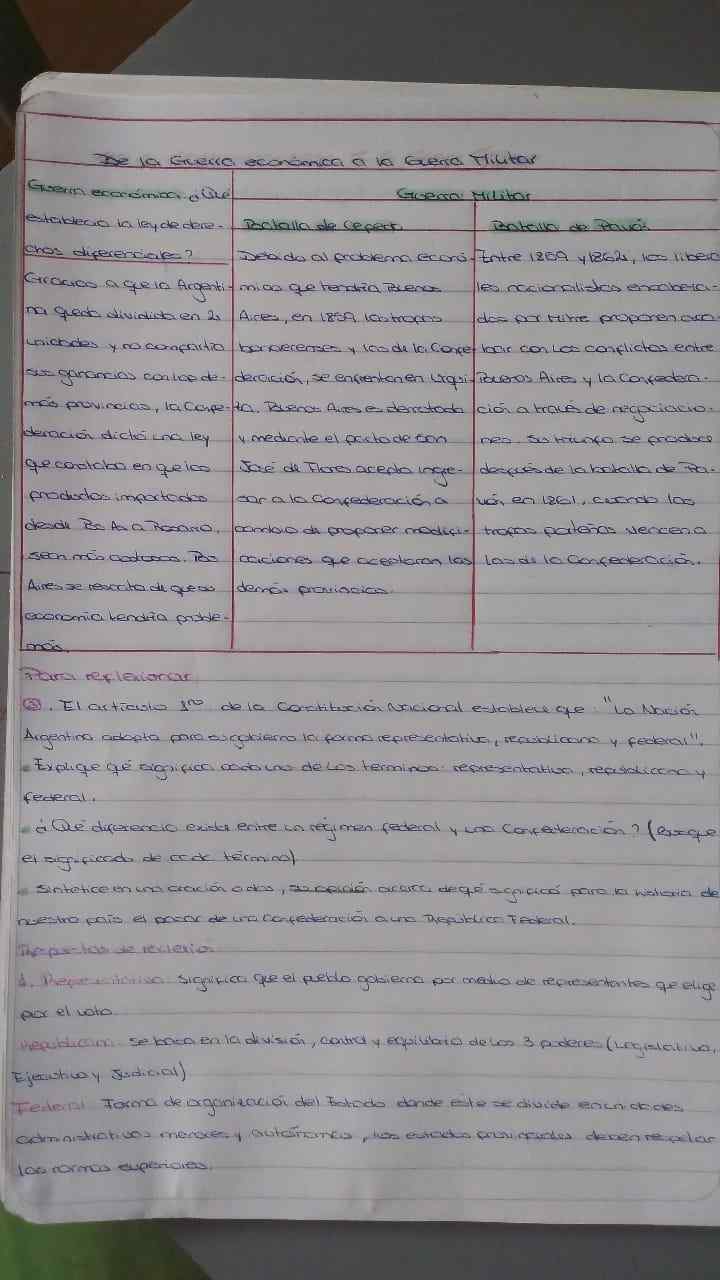 De la Guerra económica a la Guerra Militar
Guerra económica ¿Qué
estableció la ley de dere-
chos diferenciales?
Gracias a que la Argenti-
na quedo dividida en 2
unidades y no compartia
sus ganancias con las de-
más provincias, la Confe-
deración dictó una ley
que consistia en que los
productos importados
desde Bs As a Rosario,
sean más costosos. Bs
Aires se rescata de que su
economia tendria proble-
mas.
Guerra Militar
Batalla de Cepeda
Debido al problema econó-
mico que tendria Buenos
Aires, en 1859 las tropas
bonaerenses y las de la Confe-
deración, se enfrentan en Urqui-
za. Buenos Aires es derrotada
y mediante el pacto de San
José de Flores acepta ingre-
sar a la Confederación a
cambio de proponer modifi-
caciones que aceptaran las
demás provincias.
Batalla de Pavón
Entre 1859 y 1862, los libera
les nacionalistas encabeza-
dos por Mitre proponen aca
bar con los conflictos entre
Buenos Aires y la Confedera-
ción a través de negociacio-
nes. Su triunfo se produce
después de la batalla de Pa-
vón, en 1861, cuando las
tropas porteñas vencen a
las de la Confederación.
Para reflexionar
El artículo 1ro de la Constitución Nacional establece que: "La Nación
Argentina adopta para su gobierno la forma representativa, republicana y federal".
Explique qué significa cada uno de los terminos: representativa, republicana y
federal.
¿Qué diferencia existe entre un régimen federal y una Confederación? (Busque
el significado de cada término)
Sintetice en una oración o dos, su opinión acerca de qué significó para la historia de
nuestro país el pasar de una Confederación a una Republica Federal.
Respuestas de reflexión
1. Representativa: Significa que el pueblo gobierna por medio de representantes que elige
por el voto.
Republicana: se basa en la división, control y equilibrio de los 3 poderes (Legislativo,
Ejecutivo y Judicial)
Federal: Forma de organización del Estado donde este se divide en unidades
administrativas menores y autónomas, los estados provinciales deben respetar
las normas superiores.